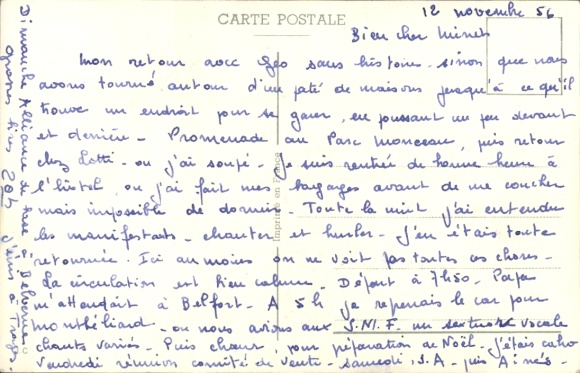 CARTE POSTALE
12 novembre 56
Bien cher Minet
Mon retour avec Géo sans histoire. sinon que nous
avons tourné autour d'un pâté de maisons jusqu'à ce qu'il
trouve un endroit pour se garer, en poussant un peu devant
et derrière - Promenade au Parc Monceau, puis retour
chez Lotti - ou j'ai soupé - Je suis rentrée de bonne heure à
l'hôtel, ou j'ai fait mes bagages avant de me coucher
mais impossible de dormir - Toute la nuit j'ai entendu
les manifestants - chanter et hurler - J'en étais toute
retournée. Ici au moins on ne voit pas toutes ces choses -
La circulation est bien calme. Départ à 7h50 - Papa
m'attendait à Belfort - A 5h je reprenais le car pour
Montbéliard - ou nous avions aux S.N.I.F. un vocale
chants variés - Puis chœur, pour préparation de Noël - J'étais
Vendredi réunion comité de vente - samedi, S.A - puis Aînés -
Dimanche Alliance de à
grosses bises 204 J'irai à
Imprimé en France